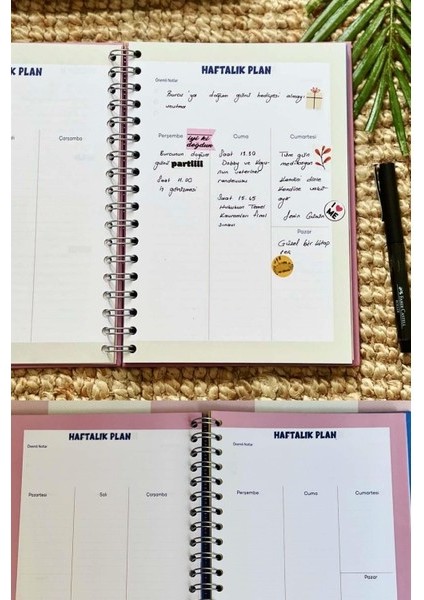 K PLAN
HAFTALIK PLAN
Önemli Notlar
Burcu'ya doğum günü hediyesi almayı
unutma
Çarşamba
Perşembe
iyi ki
doğdun
Burcunun doğum
günü partiiii
Saat 11.00
iş görüşmesi
Cuma
Saat 13.30
Dobby ve
nun veteriner
randevusu
Saat 15.45
Hukukun Temel
Kavramları final
sınavı
Cumartesi
Tüm gün
meditasyon
Kendin dinle
Kendine vakit
ayır
I ME
Pazar
Güzel bir kitap
Faber-Castell
HAFTALIK PLAN
Önemli Notlar
Pazartesi
Salı
Çarşamba
HAFTALIK PLAN
Önemli Notlar
Perşembe
Cuma
Cumartesi
Pazar